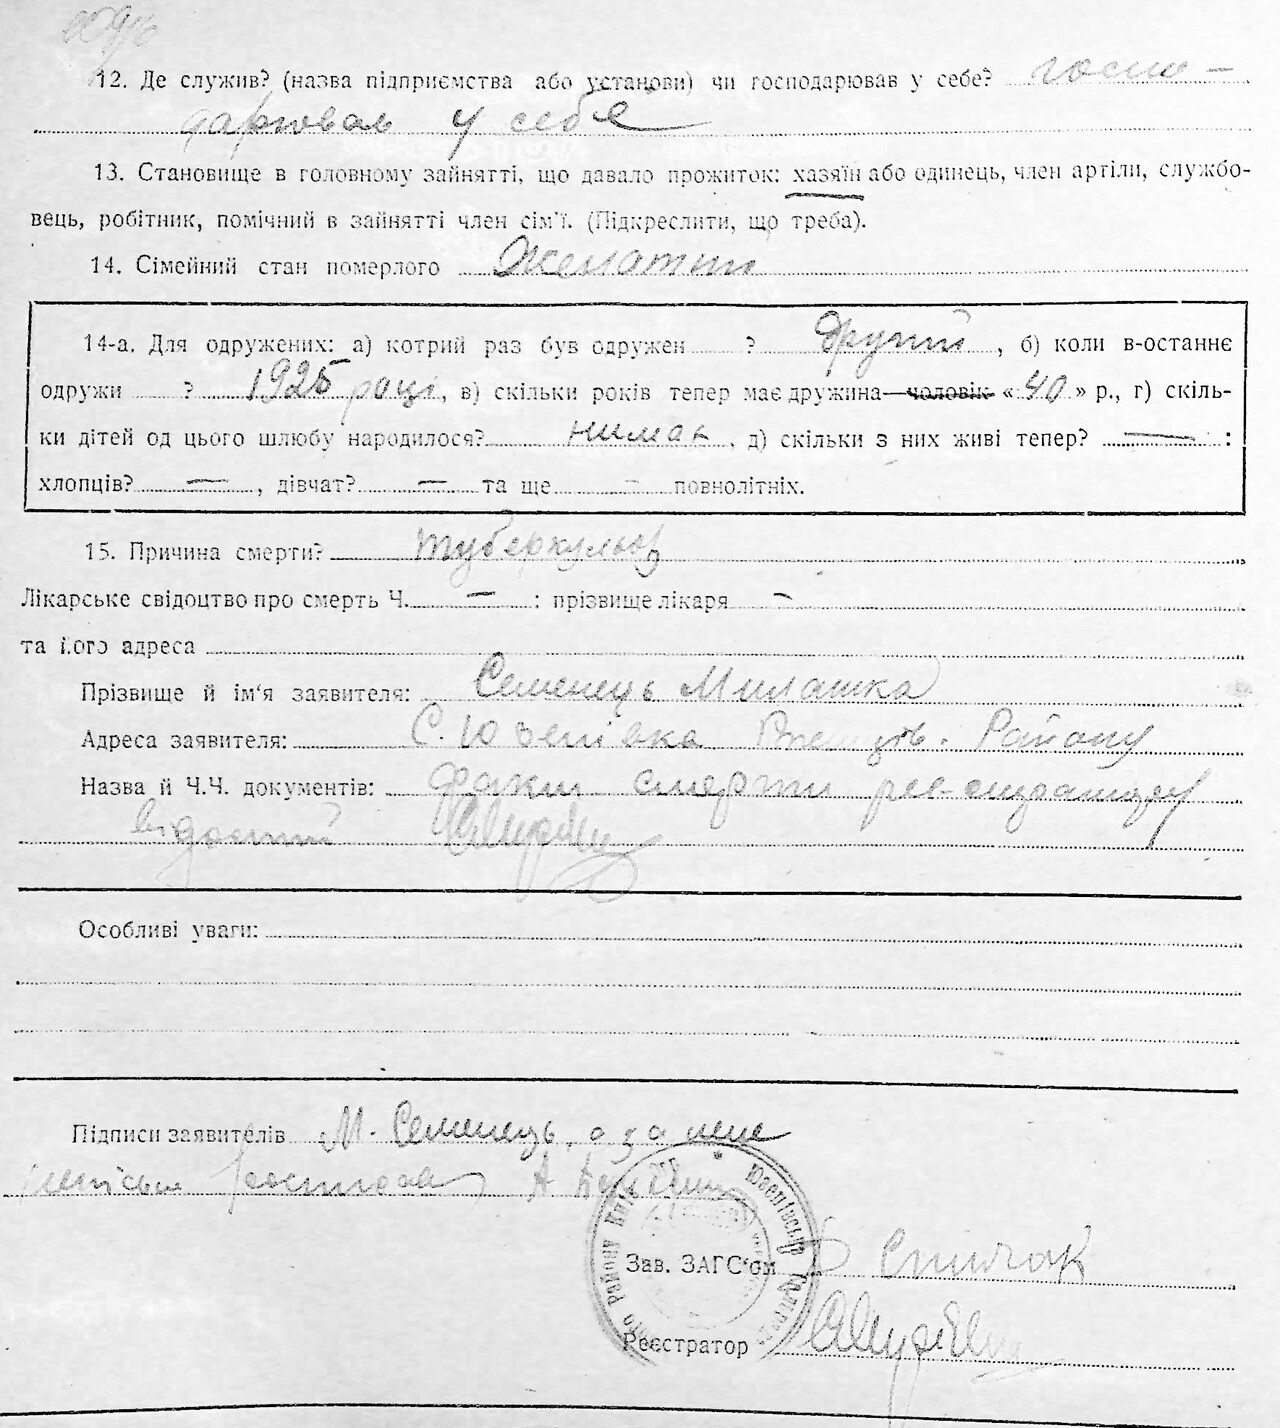 12. Де служив? (назва підприємства або установи) чи господарював у себе? госпо-
дарював у себе
13. Становище в головному зайнятті, що давало прожиток: хазяїн або одинець, член артіли, службо-
вець, робітник, помічний в зайнятті член сім'ї. (Підкреслити, що треба).
14. Сімейний стан померлого Женатий
14-а. Для одружених: а) котрий раз був одружен ? другий, б) коли в-останнє
одружи ? 1925 році, в) скільки років тепер має дружина—чоловік «40» р., г) скіль-
ки дітей од цього шлюбу народилося? нимає, д) скільки з них живі тепер? — :
хлопців? — , дівчат? — та ще — повнолітніх.
15. Причина смерти? туберкульоз
Лікарське свідоцтво про смерть Ч. — : прізвище лікаря -
та його адреса
Прізвище й ім'я заявителя: Семенець Милашка
Адреса заявителя: С. Юзепівка Району
Назва й Ч.Ч. документів: факт смерти реєстратору
відомий
Особливі уваги:
Підписи заявителів М. Семенець, а за неє
А
Зав. ЗАГС'ом Спичак
Реєстратор